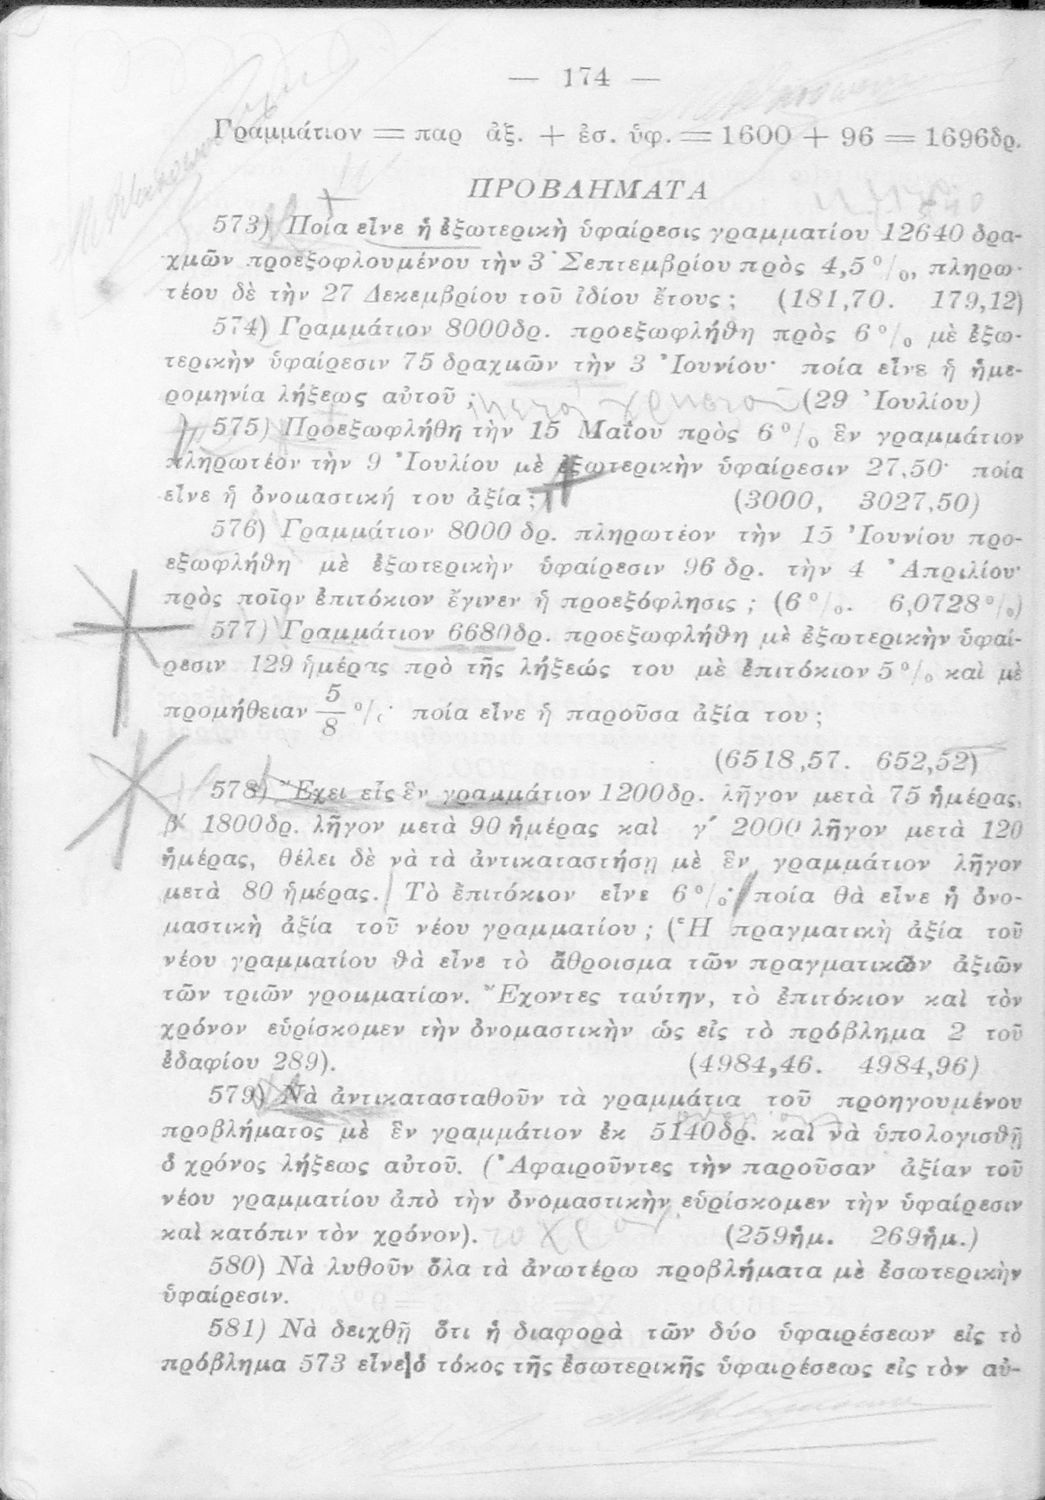 — 174 —
Γραμμάτιον = παρ ἀξ. + ἐσ. ὑφ. = 1600 + 96 = 1696δρ.
ΠΡΟΒΛΗΜΑΤΑ
573) Ποία εἶνε ἡ ἐξωτερικὴ ὑφαίρεσις γραμματίου 12640 δρα-
χμῶν προεξοφλουμένου τὴν 3 Σεπτεμβρίου πρὸς 4,5 ⁰/₀, πληρω-
τέου δὲ τὴν 27 Δεκεμβρίου τοῦ ἰδίου ἔτους ; (181,70. 179,12)
574) Γραμμάτιον 8000δρ. προεξωφλήθη πρὸς 6 ⁰/₀ μὲ ἐξω-
τερικὴν ὑφαίρεσιν 75 δραχμῶν τὴν 3 Ἰουνίου· ποία εἶνε ἡ ἡμε-
ρομηνία λήξεως αὐτοῦ ; (29 Ἰουλίου)
575) Προεξωφλήθη τὴν 15 Μαΐου πρὸς 6 ⁰/₀ ἓν γραμμάτιον
πληρωτέον τὴν 9 Ἰουλίου μὲ ἐξωτερικὴν ὑφαίρεσιν 27,50· ποία
εἶνε ἡ ὀνομαστική του ἀξία ; (3000, 3027,50)
576) Γραμμάτιον 8000 δρ. πληρωτέον τὴν 15 Ἰουνίου προ-
εξωφλήθη μὲ ἐξωτερικὴν ὑφαίρεσιν 96 δρ. τὴν 4 Ἀπριλίου·
πρὸς ποῖον ἐπιτόκιον ἔγινεν ἡ προεξόφλησις ; (6 ⁰/₀. 6,0728 ⁰/₀)
577) Γραμμάτιον 6680δρ. προεξωφλήθη μὲ ἐξωτερικὴν ὑφαί-
ρεσιν 129 ἡμέρας πρὸ τῆς λήξεώς του μὲ ἐπιτόκιον 5 ⁰/₀ καὶ μὲ
προμήθειαν 5/8 ⁰/₀· ποία εἶνε ἡ παροῦσα ἀξία του ;
(6518,57. 652,52)
578) Ἔχει εἷς ἓν γραμμάτιον 1200δρ. λῆγον μετὰ 75 ἡμέρας,
β′ 1800δρ. λῆγον μετὰ 90 ἡμέρας καὶ γ′ 2000 λῆγον μετὰ 120
ἡμέρας, θέλει δὲ νὰ τὰ ἀντικαταστήσῃ μὲ ἓν γραμμάτιον λῆγον
μετὰ 80 ἡμέρας. Τὸ ἐπιτόκιον εἶνε 6 ⁰/₀· ποία θὰ εἶνε ἡ ὀνο-
μαστικὴ ἀξία τοῦ νέου γραμματίου ; (Ἡ πραγματικὴ ἀξία τοῦ
νέου γραμματίου θὰ εἶνε τὸ ἄθροισμα τῶν πραγματικῶν ἀξιῶν
τῶν τριῶν γραμματίων. Ἔχοντες ταύτην, τὸ ἐπιτόκιον καὶ τὸν
χρόνον εὑρίσκομεν τὴν ὀνομαστικὴν ὡς εἰς τὸ πρόβλημα 2 τοῦ
ἐδαφίου 289). (4984,46. 4984,96)
579) Νὰ ἀντικατασταθοῦν τὰ γραμμάτια τοῦ προηγουμένου
προβλήματος μὲ ἓν γραμμάτιον ἐκ 5140δρ. καὶ νὰ ὑπολογισθῇ
ὁ χρόνος λήξεως αὐτοῦ. (Ἀφαιροῦντες τὴν παροῦσαν ἀξίαν τοῦ
νέου γραμματίου ἀπὸ τὴν ὀνομαστικὴν εὑρίσκομεν τὴν ὑφαίρεσιν
καὶ κατόπιν τὸν χρόνον). (259ἡμ. 269ἡμ.)
580) Νὰ λυθοῦν ὅλα τὰ ἀνωτέρω προβλήματα μὲ ἐσωτερικὴν
ὑφαίρεσιν.
581) Νὰ δειχθῇ ὅτι ἡ διαφορὰ τῶν δύο ὑφαιρέσεων εἰς τὸ
πρόβλημα 573 εἶνε ὁ τόκος τῆς ἐσωτερικῆς ὑφαιρέσεως εἰς τὸν αὐ-